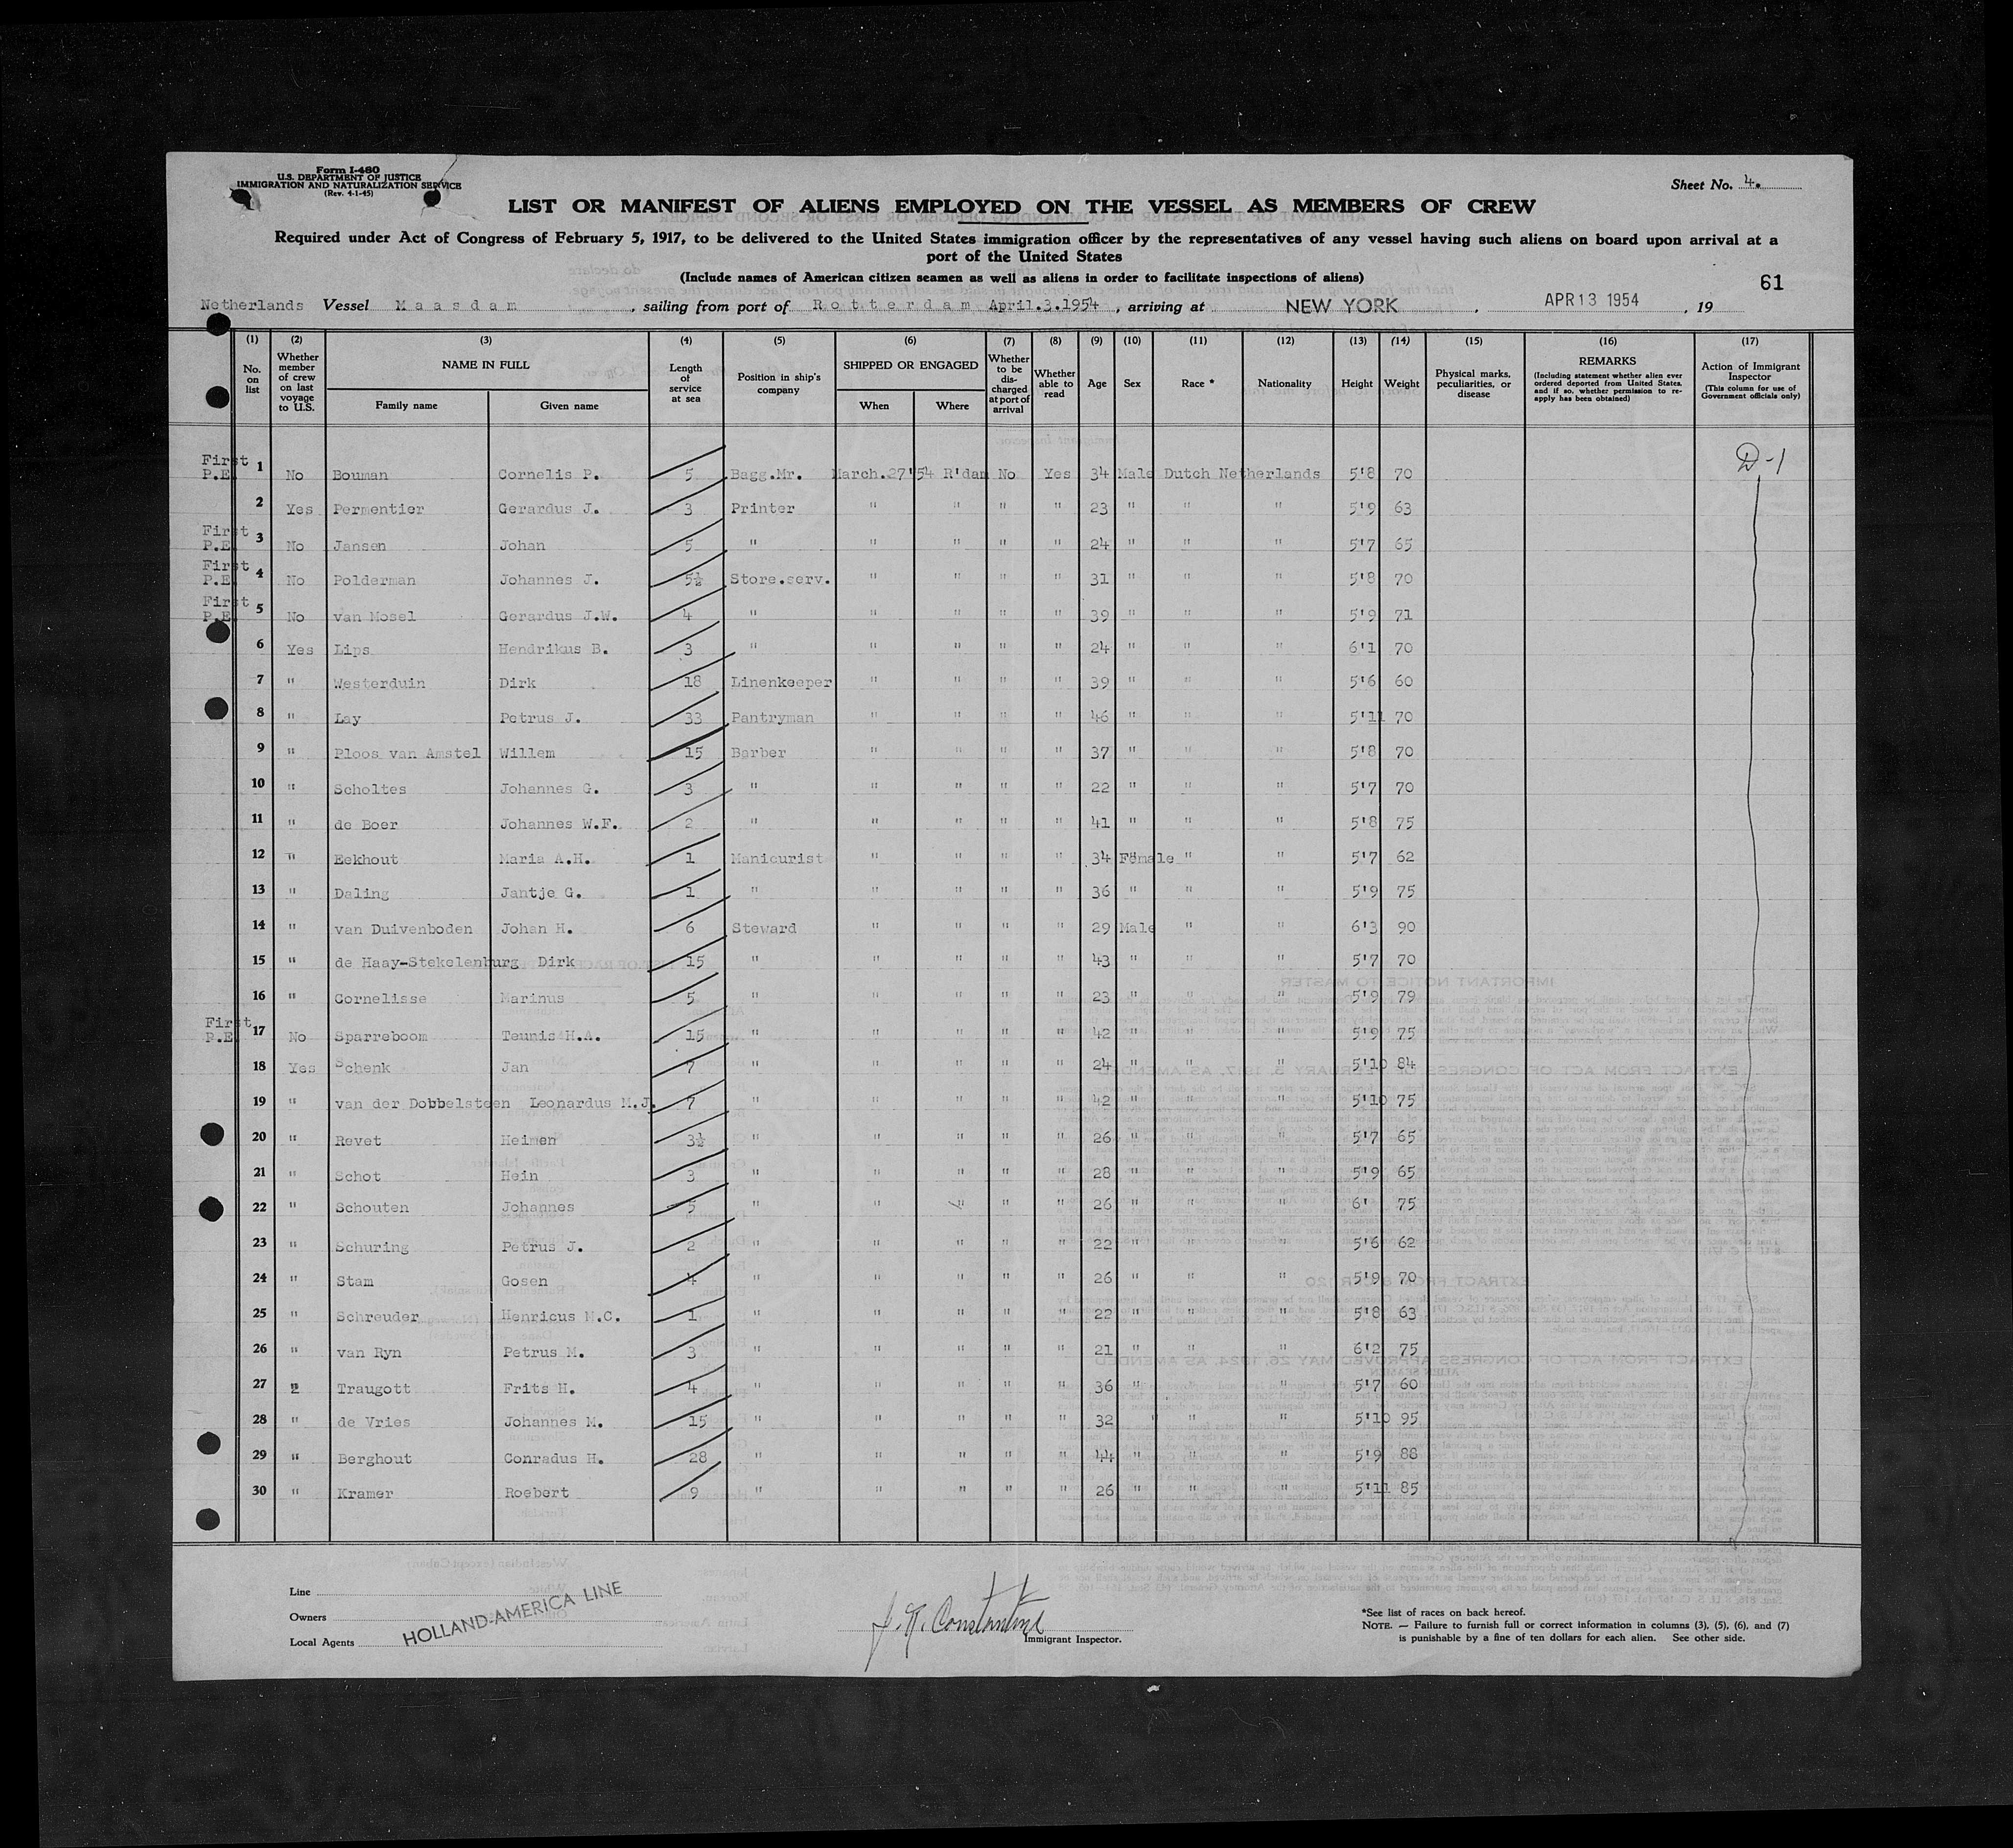 Form I-480
U.S. DEPARTMENT OF JUSTICE
IMMIGRATION AND NATURALIZATION SERVICE
(Rev. 4-1-45)
Sheet No. 4.
LIST OR MANIFEST OF ALIENS EMPLOYED ON THE VESSEL AS MEMBERS OF CREW
Required under Act of Congress of February 5, 1917, to be delivered to the United States immigration officer by the representatives of any vessel having such aliens on board upon arrival at a
port of the United States
(Include names of American citizen seamen as well as aliens in order to facilitate inspections of aliens)
61
Netherlands Vessel Maasdam, sailing from port of Rotterdam April.3.1954, arriving at NEW YORK, APR 13 1954, 19
(1) (2) (3) (4) (5) (6) (7) (8) (9) (10) (11) (12) (13) (14) (15) (16) (17)
No. on list
Whether member of crew on last voyage to U.S.
NAME IN FULL
Family name
Given name
Length of service at sea
Position in ship's company
SHIPPED OR ENGAGED
When
Where
Whether to be discharged at port of arrival
Whether able to read
Age
Sex
Race *
Nationality
Height
Weight
Physical marks, peculiarities, or disease
REMARKS
(Including statement whether alien ever ordered deported from United States, and if so, whether permission to re-apply has been obtained)
Action of Immigrant Inspector
(This column for use of Government officials only)
First P.E. 1 No Bouman Cornelis P. 5 Bagg.Mr. March.27'54 R'dam No Yes 34 Male Dutch Netherlands 5'8 70 D-1
2 Yes Permentier Gerardus J. 3 Printer " " " " 23 " " " 5'9 63
First P.E. 3 No Jansen Johan 5 " " " " " 24 " " " 5'7 65
First P.E. 4 No Polderman Johannes J. 5½ Store.serv. " " " " 31 " " " 5'8 70
First P.E. 5 No van Mosel Gerardus J.W. 4 " " " " " 39 " " " 5'9 71
6 Yes Lips Hendrikus B. 3 " " " " " 24 " " " 6'1 70
7 " Westerduin Dirk 18 Linenkeeper " " " " 39 " " " 5'6 60
8 " Lay Petrus J. 33 Pantryman " " " " 46 " " " 5'11 70
9 " Ploos van Amstel Willem 15 Barber " " " " 37 " " " 5'8 70
10 " Scholtes Johannes G. 3 " " " " " 22 " " " 5'7 70
11 " de Boer Johannes W.F. 2 " " " " " 41 " " " 5'8 75
12 " Eekhout Maria A.H. 1 Manicurist " " " " 34 Female " " 5'7 62
13 " Daling Jantje G. 1 " " " " " 36 " " " 5'9 75
14 " van Duivenboden Johan H. 6 Steward " " " " 29 Male " " 6'3 90
15 " de Haay-Stekelenburg Dirk 15 " " " " " 43 " " " 5'7 70
16 " Cornelisse Marinus 5 " " " " " 23 " " " 5'9 79
First P.E. 17 No Sparreboom Teunis H.A. 15 " " " " " 42 " " " 5'9 75
18 Yes Schenk Jan 7 " " " " " 24 " " " 5'10 84
19 " van der Dobbelsteen Leonardus M.J. 7 " " " " " 42 " " " 5'10 75
20 " Revet Heimen 3½ " " " " " 26 " " " 5'7 65
21 " Schot Hein 3 " " " " " 28 " " " 5'9 65
22 " Schouten Johannes 5 " " " " " 26 " " " 6' 75
23 " Schuring Petrus J. 2 " " " " " 22 " " " 5'6 62
24 " Stam Gosen 4 " " " " " 26 " " " 5'9 70
25 " Schreuder Henricus M.C. 1 " " " " " 22 " " " 5'8 63
26 " van Ryn Petrus M. 3 " " " " " 21 " " " 6'2 75
27 " Traugott Frits H. 4 " " " " " 36 " " " 5'7 60
28 " de Vries Johannes M. 15 " " " " " 32 " " " 5'10 95
29 " Berghout Conradus H. 28 " " " " " 44 " " " 5'9 88
30 " Kramer Roebert 9 " " " " " 26 " " " 5'11 85
Line
Owners
Local Agents
HOLLAND-AMERICA LINE
J. R. Constantine
Immigrant Inspector.
*See list of races on back hereof.
NOTE. — Failure to furnish full or correct information in columns (3), (5), (6), and (7)
is punishable by a fine of ten dollars for each alien. See other side.